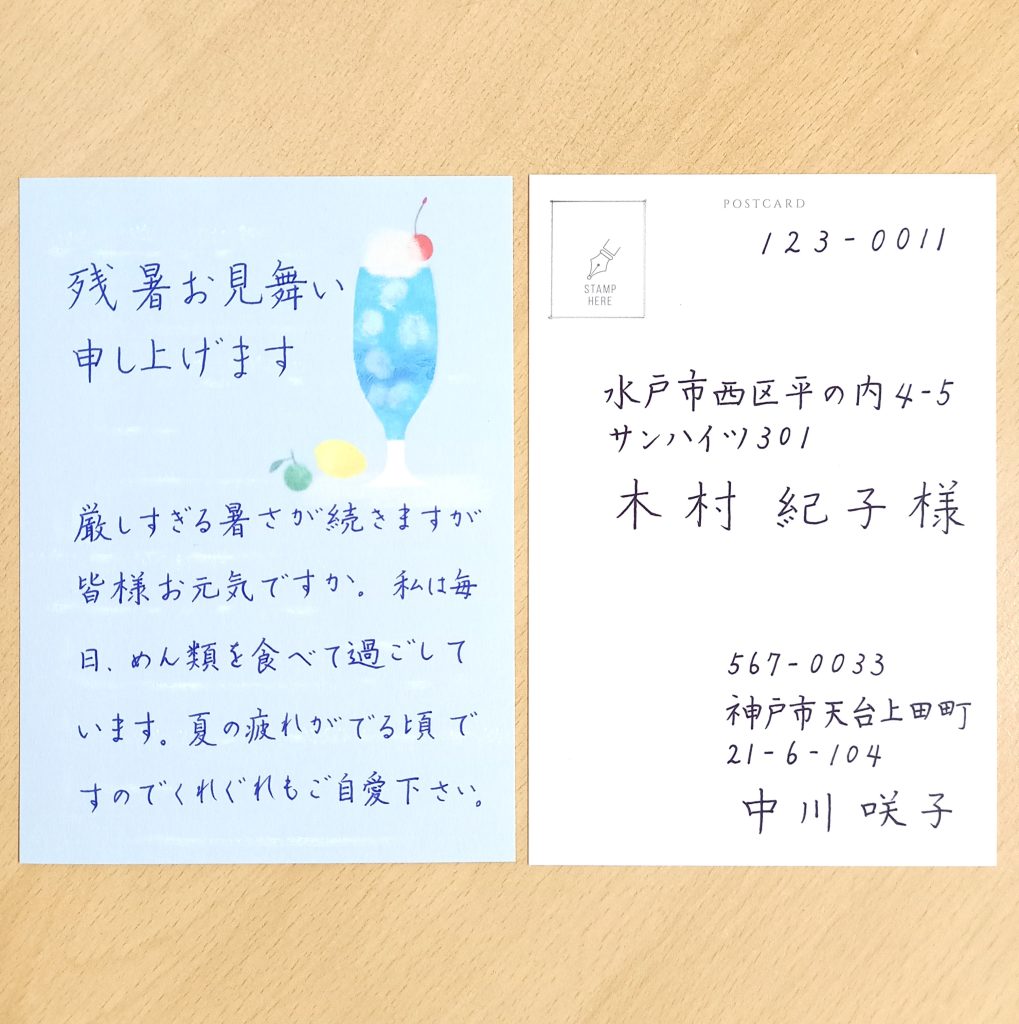 残暑お見舞い
申し上げます
厳しすぎる暑さが続きますが
皆様お元気ですか。私は毎
日、めん類を食べて過ごして
います。夏の疲れがでる頃で
すのでくれぐれもご自愛下さい。
POSTCARD
STAMP
HERE
123-0011
水戸市西区平の内4-5
サンハイツ301
木村 紀子様
567-0033
神戸市天台上田町
21-6-104
中川 咲子